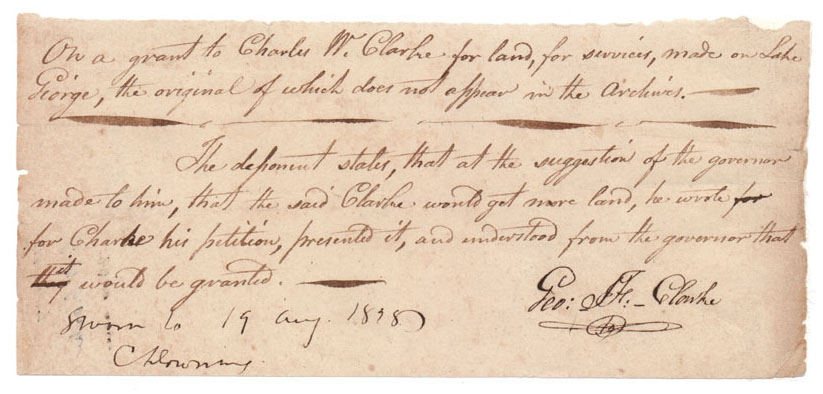 On a grant to Charles W. Clarke for land, for services, made on Lake
George, the original of which does not appear in the Archives. —
The deponent states, that at the suggestion of the governor
made to him, that the said Clarke would get more land, he wrote for
for Clarke his petition, presented it, and understood from the governor that
it would be granted. —
Sworn to 19 Aug. 1828
Geo: J. F: - Clarke
C Downing